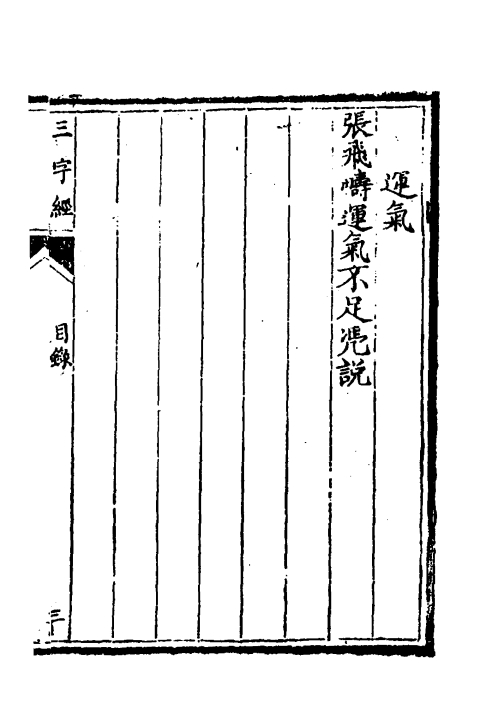 運氣
張飛疇運氣不足凴說
三字經
目錄
三